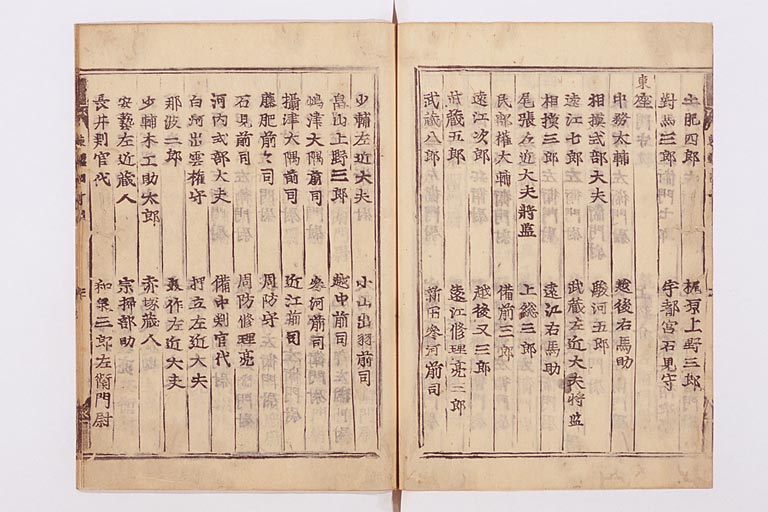 土肥四郎 梶原上野三郎
對馬三郎 宇都宮石見守
東
座
中務太輔 越後右馬助
相摸式部大夫 駿河五郎
遠江七郎 武蔵左近大夫将監
相摸三郎 遠江右馬助
尾張左近大夫將監 上総三郎
民部權大輔 備前三郎
遠江次郎 越後又三郎
武蔵五郎 遠江修理亮三郎
武蔵八郎 新田参河前司
少輔左近大夫 小山出羽前司
畠山上野三郎 越中前司
嶋津大隅前司 参河前司
攝津大隅前司 近江前司
藤肥前々司 周防守
石見前司 周防修理亮
河内式部大夫 備中判官代
白河出雲權守 打立左近大夫
那波二郎 左近大夫
少輔木工助太郎 赤塚蔵人
安藝左近蔵人 宗掃部助
長井判官代 和泉三郎左衛門尉